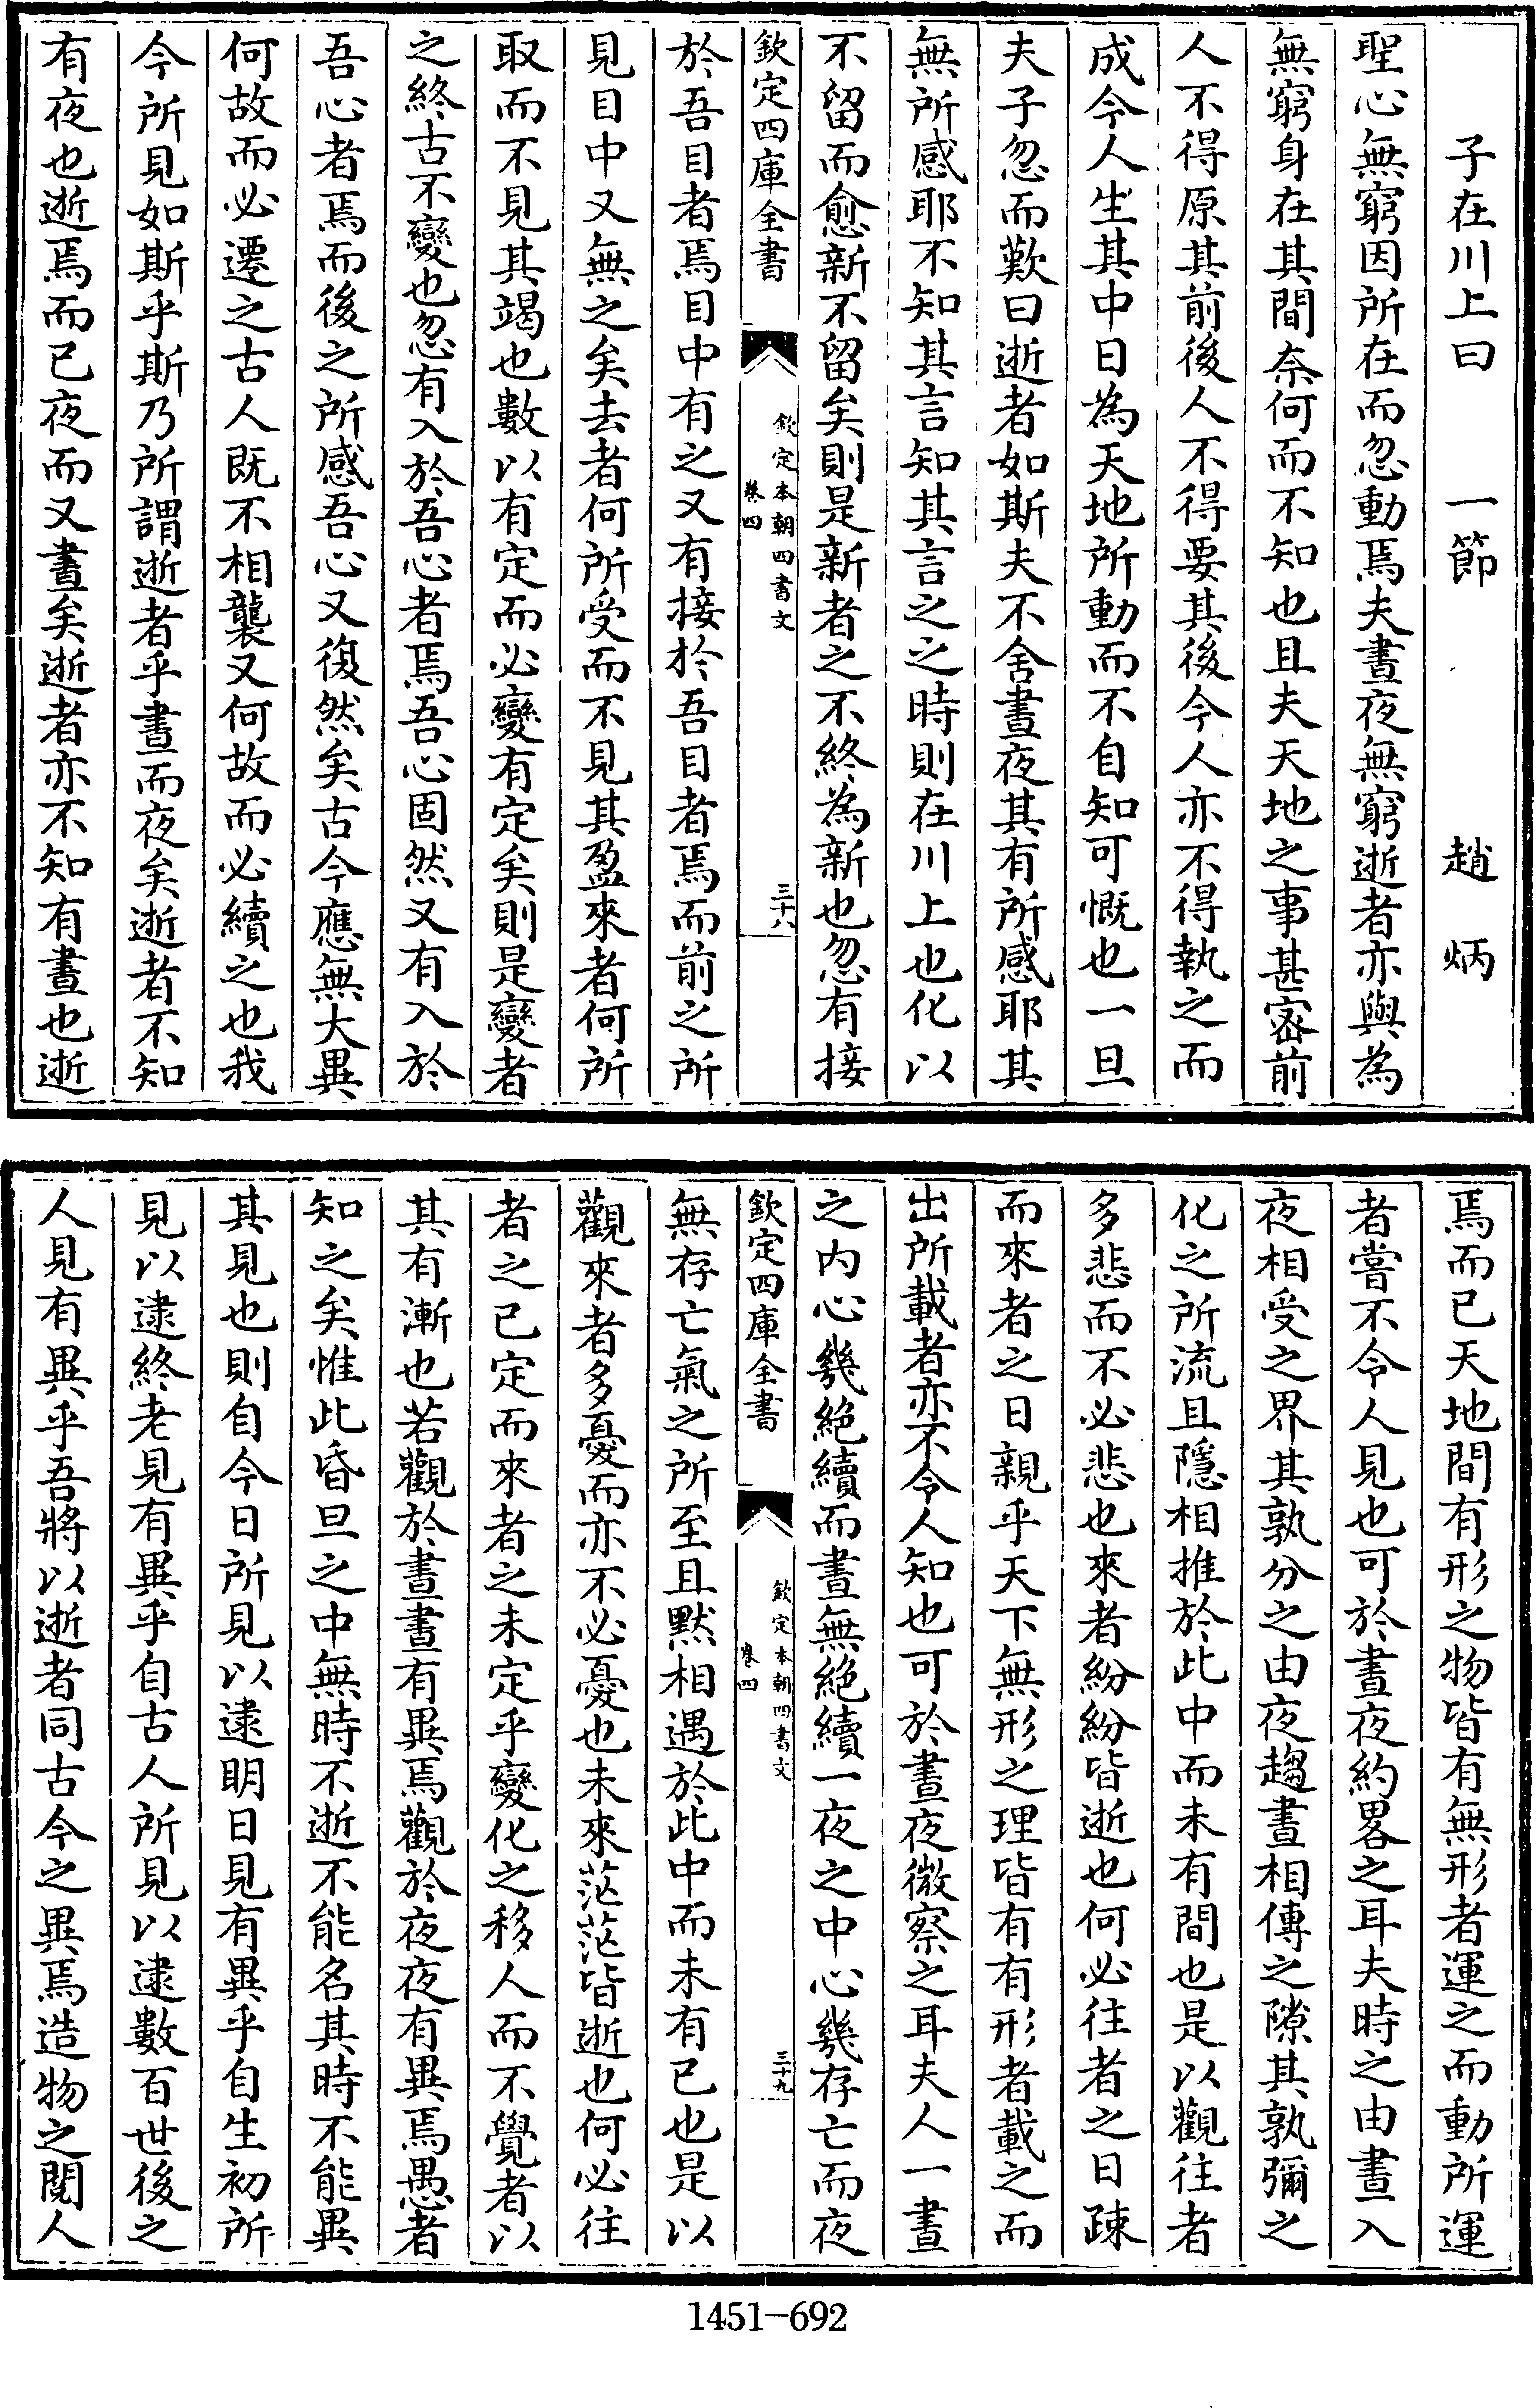 子在川上曰　一節　趙炳
聖心無窮因所在而忽動焉夫晝夜無窮逝者亦與為
無窮身在其間奈何而不知也且夫天地之事甚密前
人不得原其前後人不得要其後今人亦不得執之而
成今人生其中日為天地所動而不自知可慨也一旦
夫子忽而歎曰逝者如斯夫不舍晝夜其有所感耶其
無所感耶不知其言知其言之之時則在川上也化以
不留而愈新不留矣則是新者之不終為新也忽有接
欽定四庫全書
欽定本朝四書文
卷四
三十八
於吾目者焉目中有之又有接於吾目者焉而前之所
見目中又無之矣去者何所受而不見其盈來者何所
取而不見其竭也數以有定而必變有定矣則是變者
之終古不變也忽有入於吾心者焉吾心固然又有入於
吾心者焉而後之所感吾心又復然矣古今應無大異
何故而必遷之古人既不相襲又何故而必續之也我
今所見如斯乎斯乃所謂逝者乎晝而夜矣逝者不知
有夜也逝焉而已夜而又晝矣逝者亦不知有晝也逝
焉而已天地間有形之物皆有無形者運之而動所運
者嘗不令人見也可於晝夜約畧之耳夫時之由晝入
夜相受之界其孰分之由夜趨晝相傳之隙其孰彌之
化之所流且隱相推於此中而未有間也是以觀往者
多悲而不必悲也來者紛紛皆逝也何必往者之日疎
而來者之日親乎天下無形之理皆有有形者載之而
出所載者亦不令人知也可於晝夜微察之耳夫人一晝
之內心幾絕續而晝無絕續一夜之中心幾存亡而夜
欽定四庫全書
欽定本朝四書文
卷四
三十九
無存亡氣之所至且默相遇於此中而未有已也是以
觀來者多憂而亦不必憂也未來茫茫皆逝也何必往
者之已定而來者之未定乎變化之移人而不覺者以
其有漸也若觀於晝晝有異焉觀於夜夜有異焉愚者
知之矣惟此昏旦之中無時不逝不能名其時不能異
其見也則自今日所見以逮明日見有異乎自生初所
見以逮終老見有異乎自古人所見以逮數百世後之
人見有異乎吾將以逝者同古今之異焉造物之閱人
1451-692